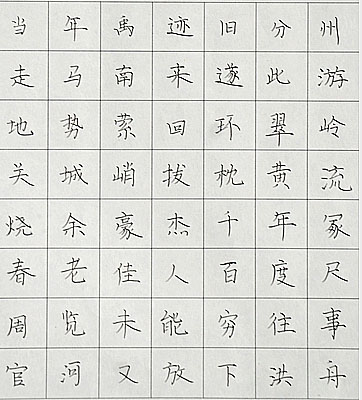 当年禹迹旧分州
走马南来遂此游
地势萦回环翠岭
关城峭拔枕黄流
烧余豪杰千年冢
春老佳人百度尺
周览未能穷往事
官河又放下洪舟